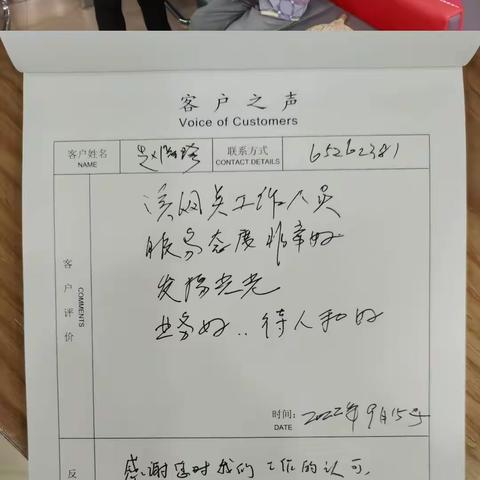 客户之声
Voice of Customers
客户姓名
NAME
联系方式
CONTACT DETAILS
65262381
客户评价
COMMENTS
该网点工作人员
服务态度非常好
发扬光大
业务好..待人和好
时间:
DATE
2022年9月15号
反
感谢您对我们工作的认可,